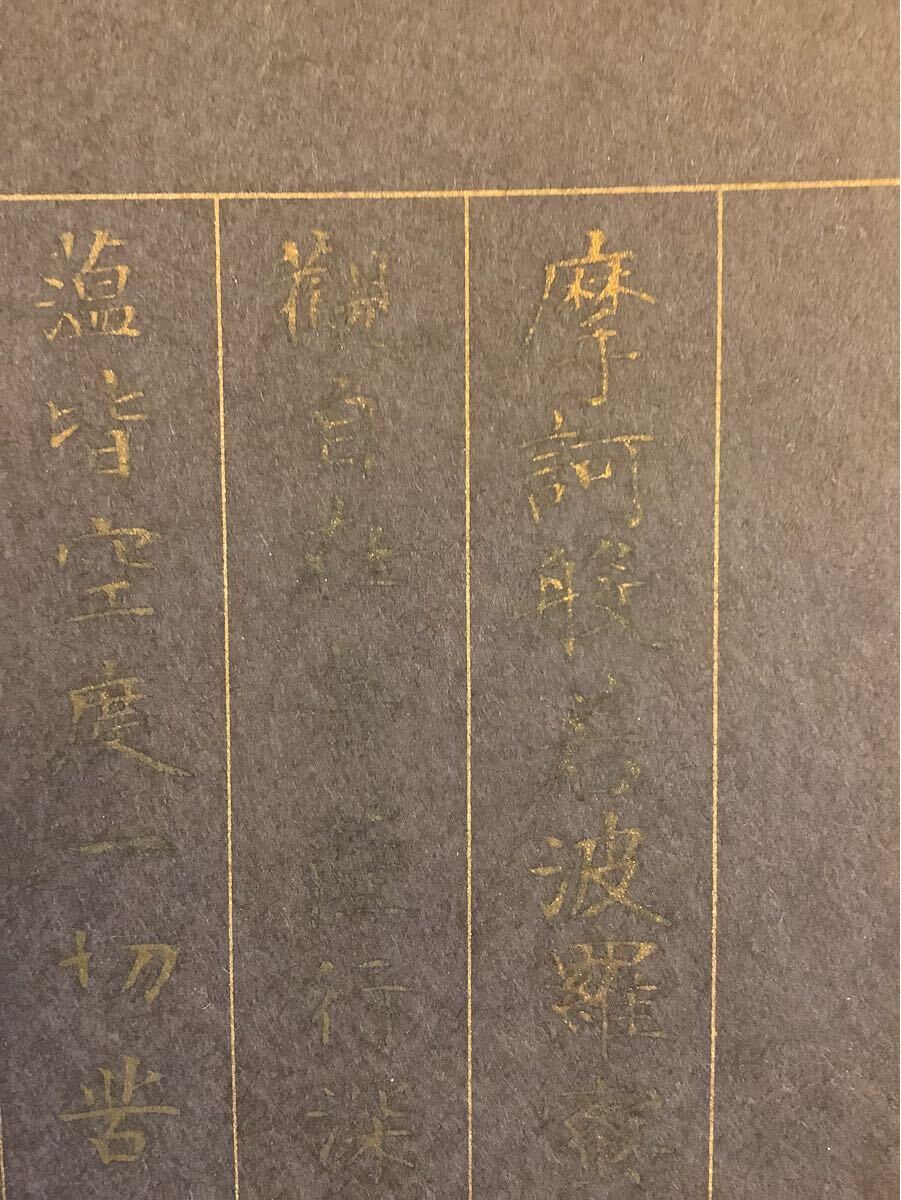 摩訶般若波羅蜜
觀自在菩薩行深
蕰皆空度一切苦